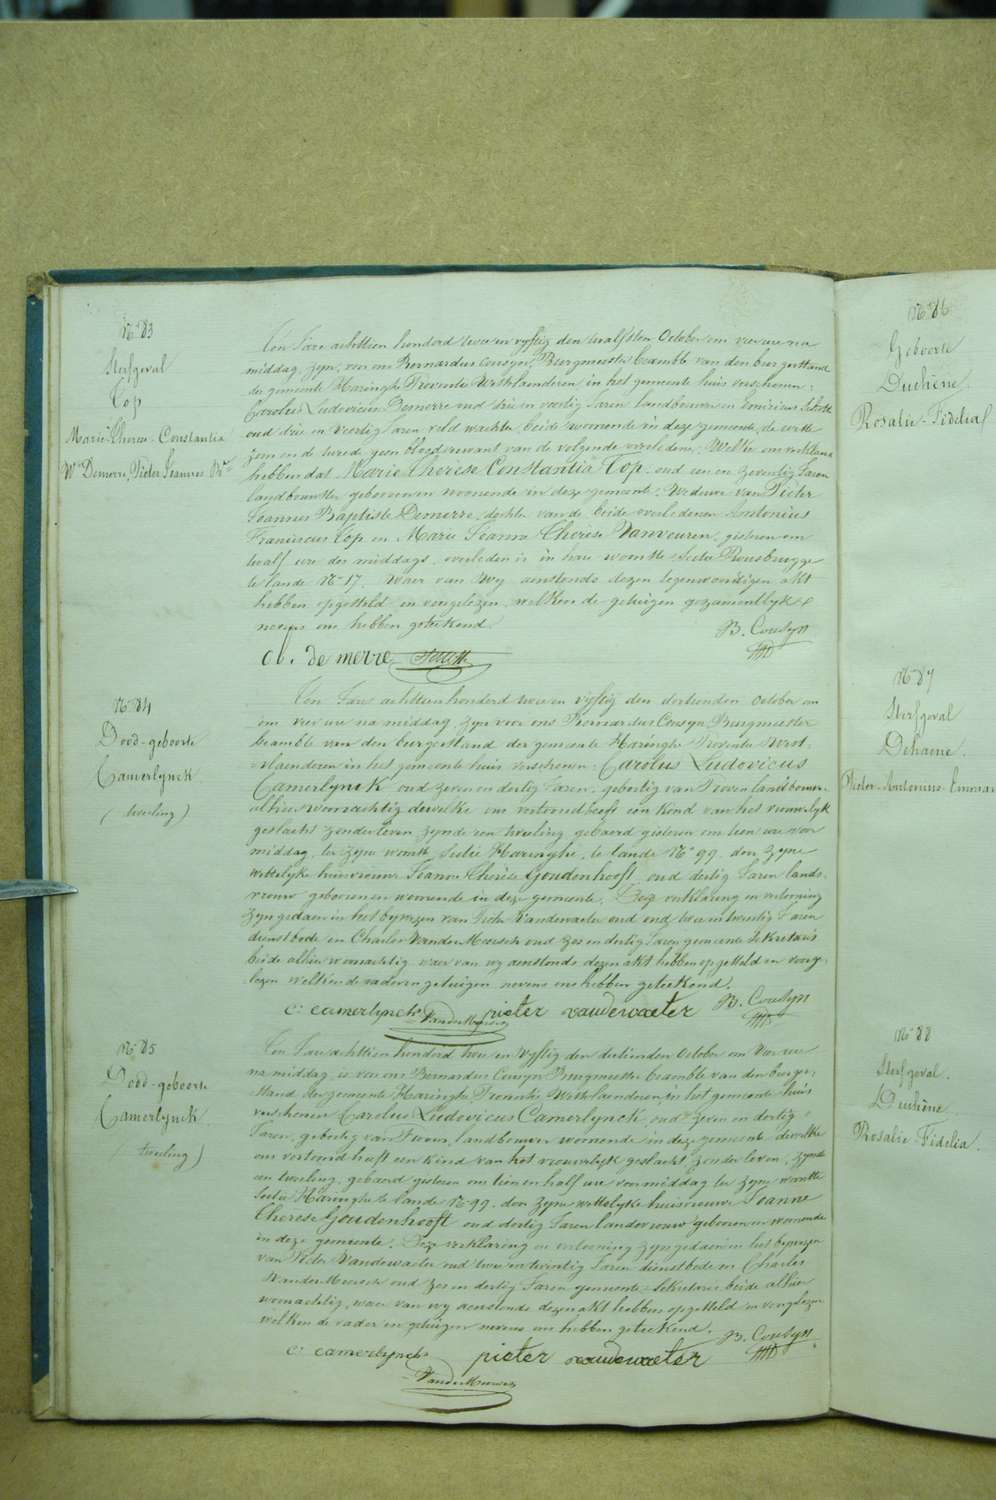 N° 83
Sterfgeval
Top
Marie-Therese-Constantia
We Demerre, Pieter Joannes Bte
Ten Jare achttien honderd twee en vyftig den twalfsten October om vier ure na
middag, zyn voor ons Bernardus Cousyn, Burgmeester beambte van den burgerstand
der gemeente Haringhe Provintie Westvlaenderen in het gemeente huis verschenen:
Carolus Ludovicus Demerre oud drie en veertig Jaren landbouwer en
oud drie en veertig Jaren veld wachter beide woonende in deze gemeente, de eerste
zoon en de tweede geen bloedverwant van de volgende overledene, Welke ons verklaren
hebben dat Marie Therese Constantia Top, oud een en zeventig Jaren
landbouwster geboren en woonende in deze gemeente, Weduwe van Pieter
Joannes Baptiste Demerre, dochter van de beide overledenen Antonius
Franciscus Top en Marie Joanna Therese Vanveuren, gisteren om
twalf ure des middags, overleden is in haer woonste Sectie Rousbrugge
te lande N° 17. Waer van Wy aenstonds dezen tegenwoordigen akt
hebben opgesteld en voorgelezen, welken de getuigen gezamentlyk
nevens ons hebben geteekend.
B. Cousyn
Cl. de merre
N° 84
Dood-geboorte
Camerlynck
(tweeling)
Ten Jare achttien honderd twee en vyftig den dertienden October om
om vier ure na middag, zyn voor ons Bernardus Cousyn Burgmeester
beambte van den burgerstand der gemeente Haringhe Provintie West-
vlaenderen in het gemeente huis verschenen: Carolus Ludovicus
Camerlynck oud zeven en dertig Jaren, gebortig van Proven landbouwer
alhier woonachtig dewelke ons vertoond heeft een kind van het vrouwelyk
geslacht zonder leven, zynde een tweeling gebaerd gisteren om tien ure voor
middag, ter zyne woonste, Sectie Haringhe, te lande N° 99, door zyne
wettelyke huisvrouw Joanna Therese Goudenhooft, oud dertig Jaren lands-
vrouw geboren en woonende in deze gemeente. Deze verklaring en vertooning
zyn gedaen in het bywezen van Pieter Vandewaeter oud oud twee en twintig Jaren
dienstbode en Charles Vander Meersch oud zes en dertig Jaren gemeente Sekretaris
beide alhier woonachtig, waer van wy aenstonds dezen akt hebben opgesteld en voorge-
lezen welken de vader en getuigen nevens ons hebben geteekend.
B. Cousyn
C: camerlynck VanderMeersch pieter vandewaeter
N° 85
Dood-geboorte
Camerlynck
(tweeling)
Ten Jare achttien honderd twee en vyftig den dertienden October om vier ure
na middag, is voor ons Bernardus Cousyn Burgmeester beambte van den burger-
stand der gemeente Haringhe Provintie Westvlaenderen in het gemeente huis
verschenen Carolus Ludovicus Camerlynck, oud zeven en dertig
Jaren, gebortig van Proven, landbouwer woonende in deze gemeente dewelke
ons vertoond heeft een kind van het vrouwelyk geslacht zonder leven, zynde
een tweeling, gebaerd gisteren om tien en half ure voormiddag ter zyne woonste
Sectie Haringhe te lande N° 99, door zyne wettelyke huisvrouw Joanna
Therese Goudenhooft oud dertig Jaren landsvrouw geboren en woonende
in deze gemeente. Deze verklaring en vertooning zyn gedaen in het bywezen
van Pieter Vandewaeter oud twee en twintig Jaren dienstbode en Charles
Vander Meersch oud zes en dertig Jaren gemeente Sekretaris beide alhier
woonachtig, waer van wy aenstonds dezen akt hebben opgesteld en voorgelezen
welken de vader en getuigen nevens ons hebben geteekend.
B. Cousyn
C: camerlynck pieter vandewaeter
VanderMeersch
N° 86
Geboorte
Duchène
Rosalie-Fidelia
N° 87
Sterfgeval
Dehaene.
Pieter-Antonius-
N° 88
Sterfgeval.
Duchène
Rosalie-Fidelia.